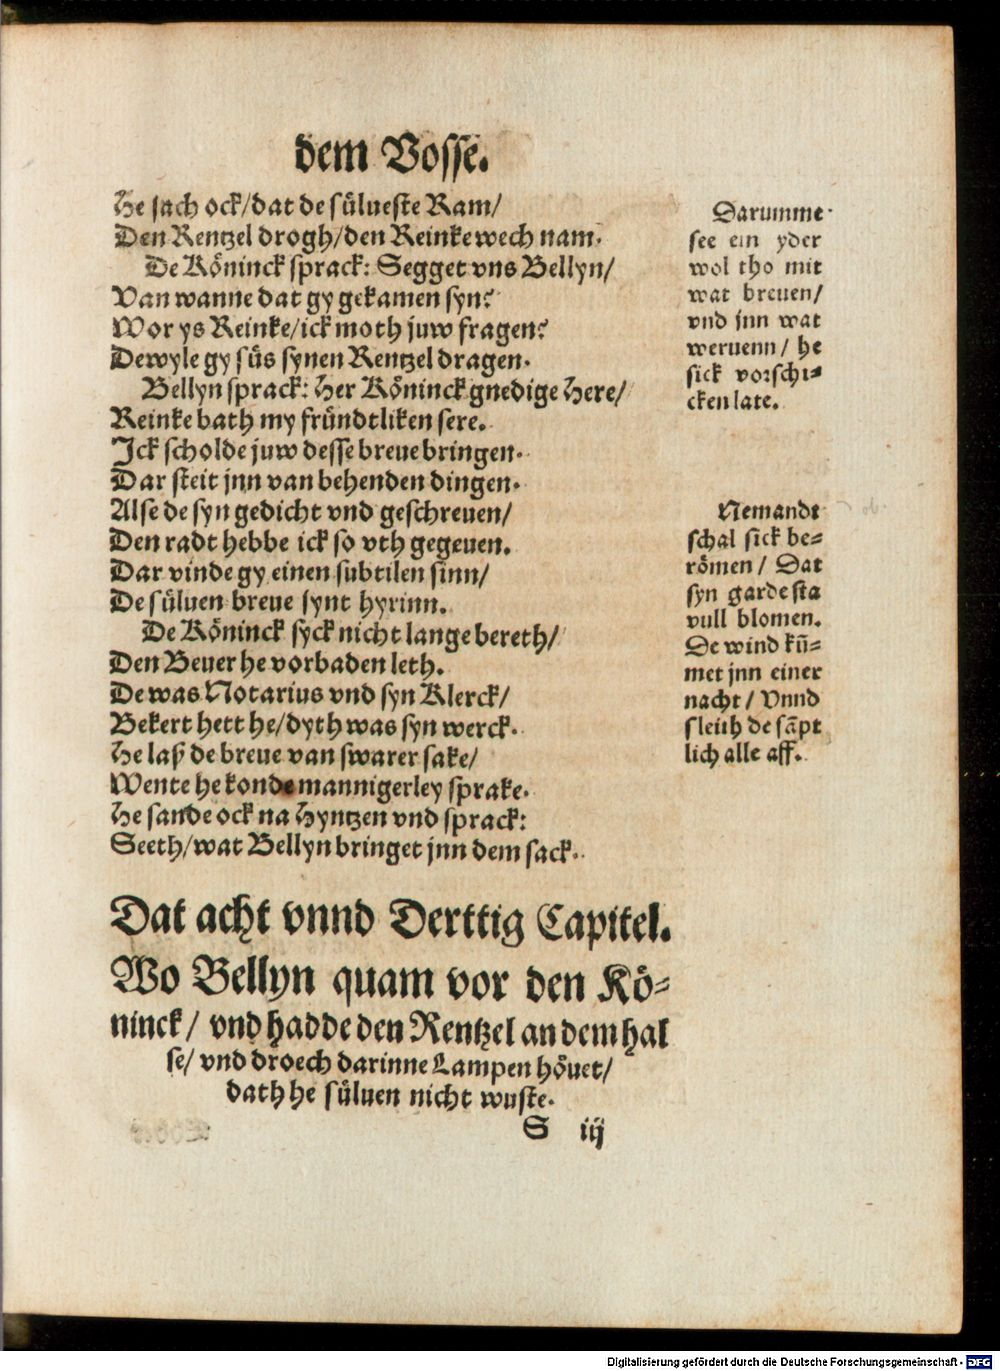 dem Vosse.
He sach ock/dat de sülueste Ram/
Den Rentzel drogh/den Reinke wech nam.
De Köninck sprack: Segget vns Bellyn/
Van wanne dat gy gekamen syn?
Wor ys Reinke/ick moth juw fragen?
Dewyle gy süs synen Rentzel dragen.
Bellyn sprack: Her Köninck gnedige Here/
Reinke bath my fründtliken sere.
Ick scholde juw desse breue bringen.
Dar steit jnn van behenden dingen.
Alse de syn gedicht vnd geschreuen/
Den radt hebbe ick so vth gegeuen.
Dar vinde gy einen subtilen sinn/
De süluen breue synt hyrinn.
De Köninck syck nicht lange bereth/
Den Beuer he vorbaden leth.
De was Notarius vnd syn Klerck/
Bekert hett he/dyth was syn werck.
He laß de breue van swarer sake/
Wente he konde mannigerley sprake.
He sande ock na Hyntzen vnd sprack:
Seeth/wat Bellyn bringet jnn dem sack.
Darumme
see ein yder
wol tho mit
wat breuen/
vnd jnn wat
weruenn/ he
sick vorschi⸗
cken late.
Nemandt
schal sick be⸗
römen/ Dat
syn garde sta
vull blomen.
De wind kū⸗
met jnn einer
nacht/ Vnnd
sleith de sāpt
lich alle aff.
Dat acht vnnd Derttig Capitel.
Wo Bellyn quam vor den Kö⸗
ninck/ vnd hadde den Rentzel an dem hal
se/ vnd droech darinne Lampen höuet/
dath he süluen nicht wuste.
S iij
Digitalisierung gefördert durch die Deutsche Forschungsgemeinschaft - DFG